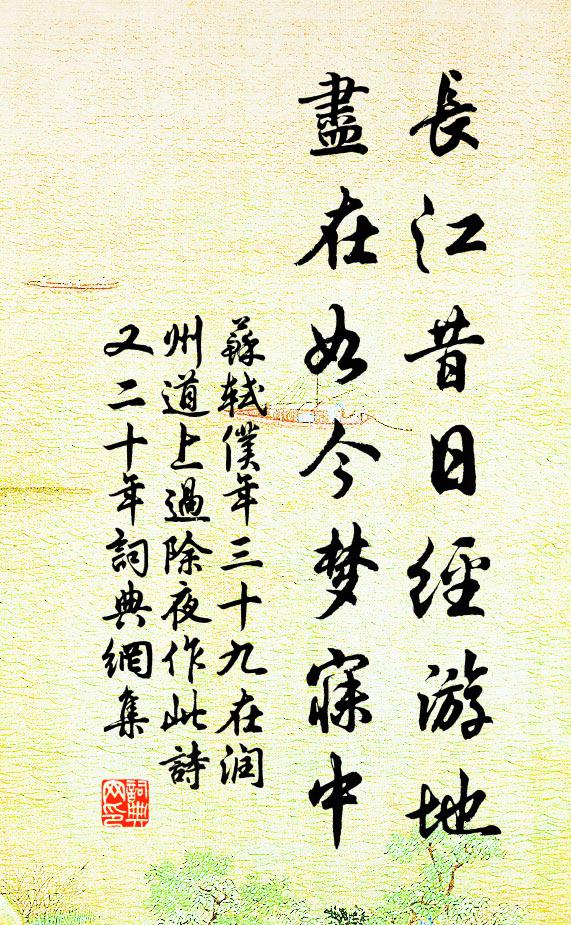 長江昔日經游地
盡在如今梦寐中
蘇軾僕年三十九在润
州道上過除夜作此詩
又二十年詞典網集
詞典网印